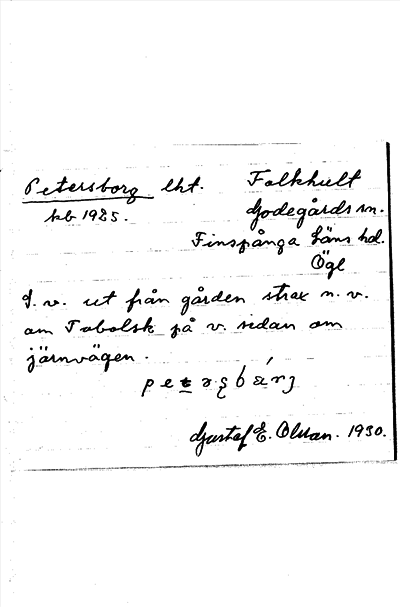 Petersborg lht. Folkhult
kb 1925. Godegårds sn.
Finspånga läns hd.
Ögl
S. v. ut från gården strax n. v.
om Tobolsk på v. sidan om
järnvägen.
Gustaf E. Olsson. 1930.